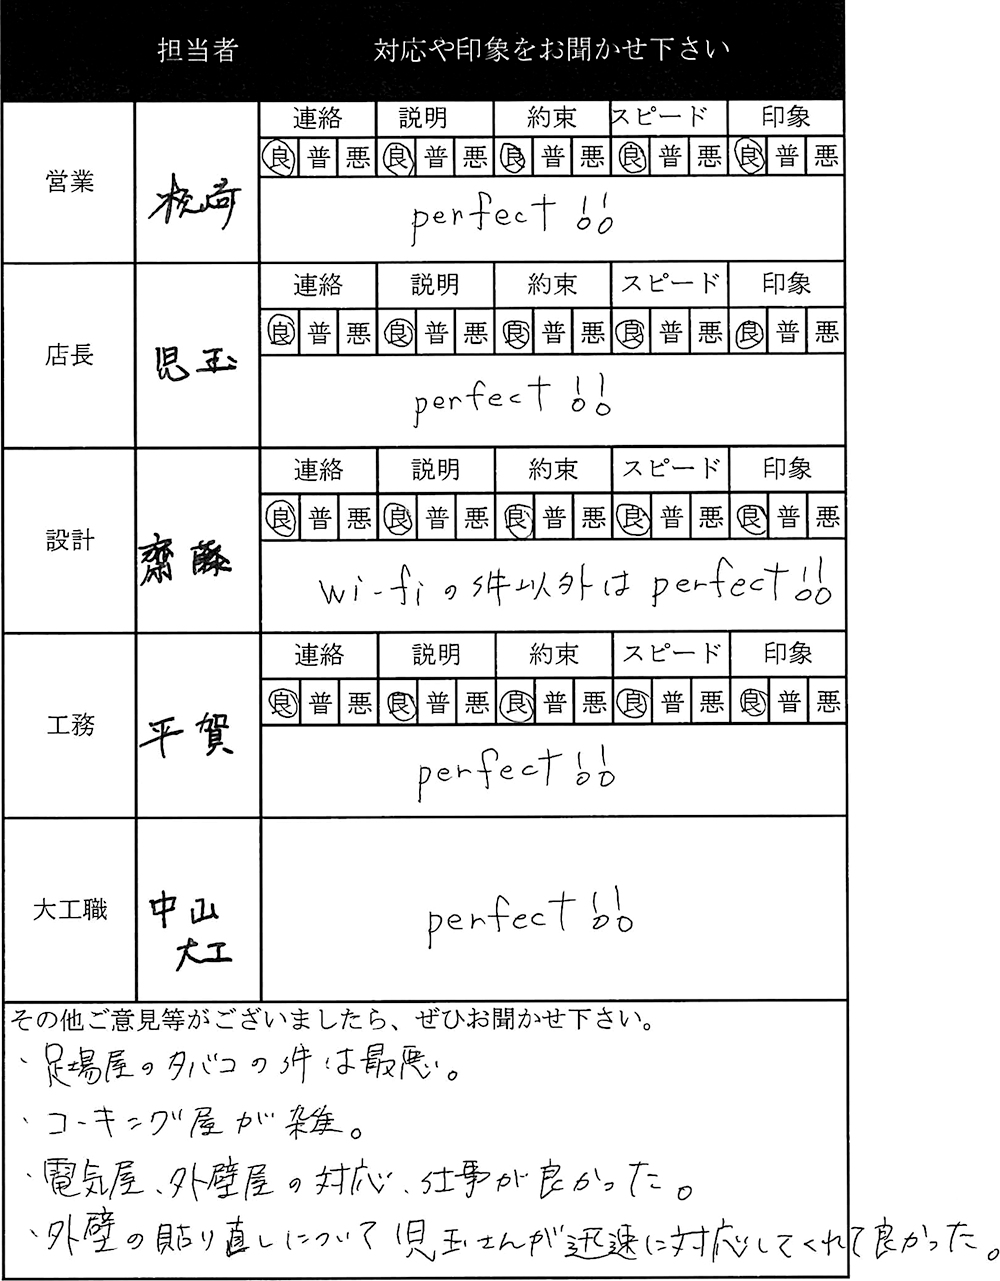 担当者 対応や印象をお聞かせ下さい
連絡 説明 約束 スピード 印象
良 普 悪 良 普 悪 良 普 悪 良 普 悪 良 普 悪
営業
perfect!!
連絡 説明 約束 スピード 印象
良 普 悪 良 普 悪 良 普 悪 良 普 悪 良 普 悪
店長 児玉
perfect!!
連絡 説明 約束 スピード 印象
良 普 悪 良 普 悪 良 普 悪 良 普 悪 良 普 悪
設計 齋藤
wi-fiの件以外はperfect!!
連絡 説明 約束 スピード 印象
良 普 悪 良 普 悪 良 普 悪 良 普 悪 良 普 悪
工務 平賀
perfect!!
大工職 中山
大工
perfect!!
その他ご意見等がございましたら、ぜひお聞かせ下さい。
・足場屋のタバコの件は最悪。
・コーキング屋が雑。
・電気屋、外壁屋の対応、仕事が良かった。
・外壁の貼り直しについて児玉さんが迅速に対応してくれて良かった。